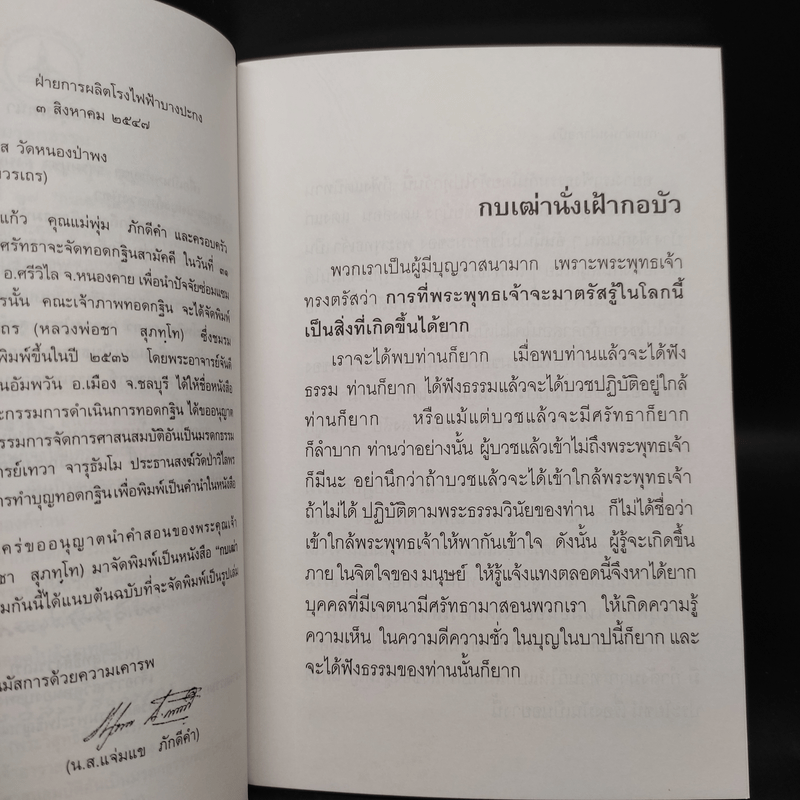 ฝ่ายการผลิตโรงไฟฟ้าบางปะกง
๓ สิงหาคม ๒๕๔๗
ส วัดหนองป่าพง
วรเถร)
แก้ว คุณแม่พุ่ม ภักดีคำ และครอบครัว
ศรัทธาจะจัดทอดกฐินสามัคคี ในวันที่ ๓๑
อ.ศรีวิไล จ.หนองคาย เพื่อนำปัจจัยซ่อมแซม
รนั้น คณะเจ้าภาพทอดกฐิน จะได้จัดพิมพ์
ถร (หลวงพ่อชา สุภทฺโท) ซึ่งชมรม
พิมพ์ขึ้นในปี ๒๕๓๖ โดยพระอาจารย์จันดี
นอัมพวัน อ.เมือง จ.ชลบุรี ได้ให้ชื่อหนังสือ
ะกรรมการดำเนินการทอดกฐิน ได้ขออนุญาต
รรมการจัดการศาสนสมบัติอันเป็นมรดกธรรม
ารย์เทวา จารุธัมโม ประธานสงฆ์วัดป่าวิไลพร
การทำบุญทอดกฐิน เพื่อพิมพ์เป็นคำนำในหนังสือ
คร่ขออนุญาตนำคำสอนของพระคุณเจ้า
ชา สุภทฺโท) มาจัดพิมพ์เป็นหนังสือ "กบเฒ่า
มกันนี้ได้แนบต้นฉบับที่จะจัดพิมพ์เป็นรูปเล่ม
นมัสการด้วยความเคารพ
(น.ส.แจ่มแข ภักดีคำ)
กบเฒ่านั่งเฝ้ากอบัว
พวกเราเป็นผู้มีบุญวาสนามาก เพราะพระพุทธเจ้า
ทรงตรัสว่า การที่พระพุทธเจ้าจะมาตรัสรู้ในโลกนี้
เป็นสิ่งที่เกิดขึ้นได้ยาก
เราจะได้พบท่านก็ยาก เมื่อพบท่านแล้วจะได้ฟัง
ธรรม ท่านก็ยาก ได้ฟังธรรมแล้วจะได้บวชปฏิบัติอยู่ใกล้
ท่านก็ยาก หรือแม้แต่บวชแล้วจะมีศรัทธาก็ยาก
ก็ลำบาก ท่านว่าอย่างนั้น ผู้บวชแล้วเข้าไม่ถึงพระพุทธเจ้า
ก็มีนะ อย่านึกว่าถ้าบวชแล้วจะได้เข้าใกล้พระพุทธเจ้า
ถ้าไม่ได้ ปฏิบัติตามพระธรรมวินัยของท่าน ก็ไม่ได้ชื่อว่า
เข้าใกล้พระพุทธเจ้าให้พากันเข้าใจ ดังนั้น ผู้รู้จะเกิดขึ้น
ภาย ในจิตใจของ มนุษย์ ให้รู้แจ้งแทงตลอดนี้จึงหาได้ยาก
บุคคลที่มีเจตนามีศรัทธามาสอนพวกเรา ให้เกิดความรู้
ความเห็น ในความดีความชั่ว ในบุญในบาปนี้ก็ยาก และ
จะได้ฟังธรรมของท่านนั้นก็ยาก